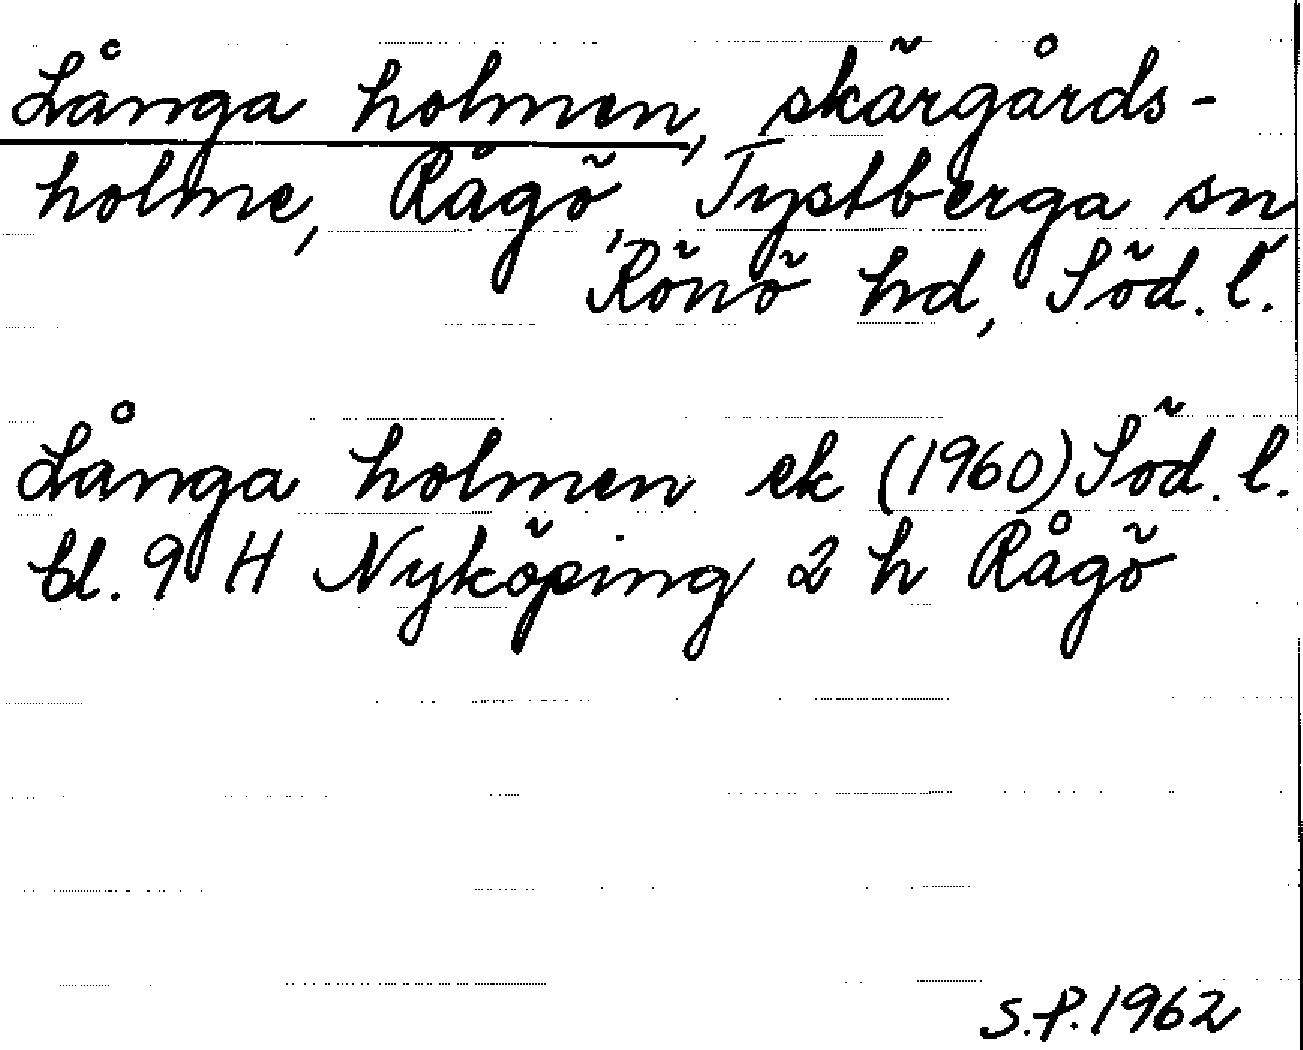 Långa holmen, skärgårds-
holme, Rågö, Tystberga sn
Rönö hd, Söd. l.
Långa holmen ek (1960) Söd. l.
bl. 9 H Nyköping 2 h Rågö
S.P. 1962